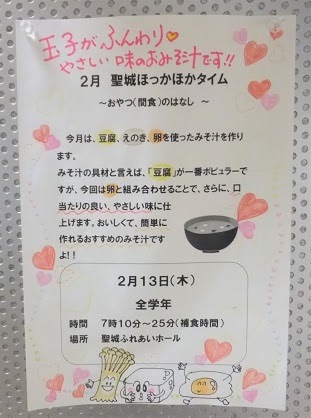 玉子がふんわり♡
やさしい味のおみそ汁です!!
2月 聖城ほっかほかタイム
～おやつ(間食)のはなし ～
今月は、豆腐、えのき、卵を使ったみそ汁を作り
ます。
みそ汁の具材と言えば、「豆腐」が一番ポピュラーで
すが、今回は卵と組み合わせることで、さらに、口
当たりの良い、やさしい味に仕
上げます。おいしくて、簡単に
作れるおすすめのみそ汁です
よ！！
2月13日(木)
全学年
時間 7時10分～25分(補食時間)
場所 聖城ふれあいホール